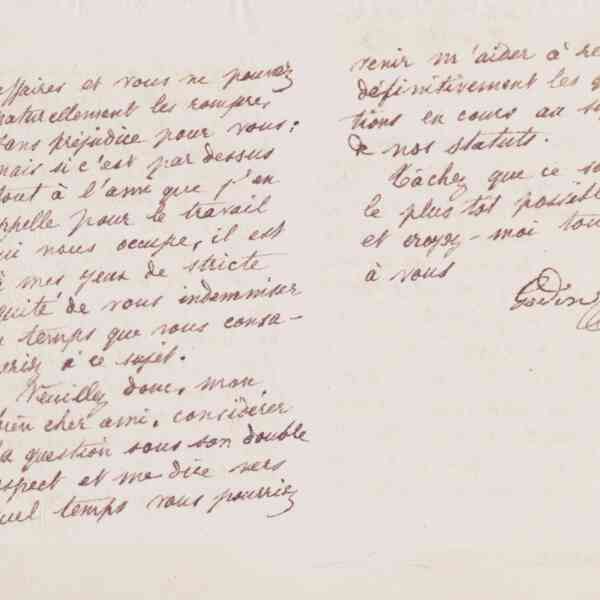 affaires et vous ne pouvez
naturellement les rompre
sans préjudice pour vous;
mais si c'est par dessus
tout à l'ami que j'en
appelle pour le travail
qui nous occupe, il est
à mes yeux de stricte
équité de vous indemniser
du temps que vous consa-
à ce sujet.
Veuillez donc, mon
bien cher ami, considérer
la question sous son double
aspect et me dire vers
quel temps vous pourriez
venir m'aider à
définitivement les
tions en cours au
de nos statuts.
Tâchez que ce
le plus tôt possible
et croyez-moi
à vous
Godin